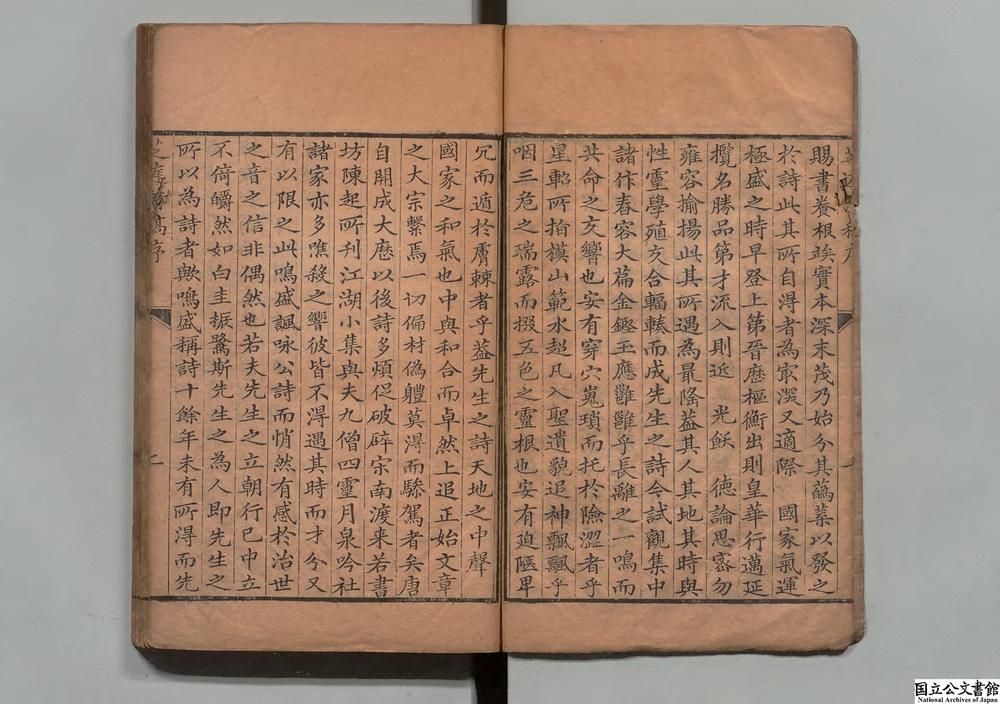 賜書養根竢實本深末茂乃始分其蘤葉以發之
於詩此其所自得者為䆮深又適際　國家氣運
極盛之時早登上第晉歷樞衡出則皇華行邁延
攬名勝品第才流入則近　光飫　德論思密勿
雍容揄揚此其所遇為最隆葢其人其地其時與
性靈學殖交合輻輳而成先生之詩今試觀集中
諸作舂容大篇金鏗玉應雝雝乎長離之一鳴而
共命之交響也安有穿穴嵬瑣而托於險澀者乎
星軺所指模山範水超凡入聖遺貌追神飄飄乎
咽三危之瑞露而掇五色之靈根也安有迫隘卑
冗而遁於膚棘者乎葢先生之詩天地之中聲
國家之和氣也中與和合而卓然上追正始文章
之大宗繫焉一切偏材偽體莫得而驂駕者矣唐
自開成大歷以後詩多煩促破碎宗南渡來若書
坊陳起所刊江湖小集與夫九僧四靈月泉吟社
諸家亦多噍殺之響彼皆不得遇其時而才分又
有以限之此鳴盛諷咏公詩而悄然有感於治世
之音之信非偶然也若夫先生之立朝行己中立
不倚皭然如白圭振鷺斯先生之為人即先生之
所以為詩者歟鳴盛稱詩十餘年未有所得而先
芝庭 稿序
二
国立公文書館
National Archives of Japan